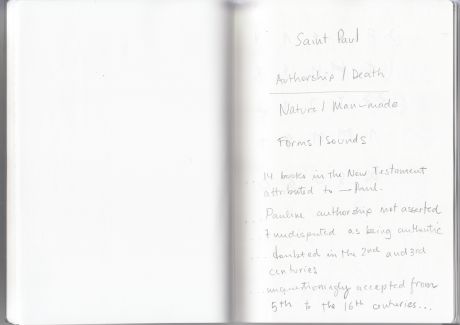 Saint Paul
Authorship / Death
Nature / Man-made
Forms / Sounds
14 books in the New Testament
attributed to — Paul.
Pauline authorship not asserted
7 undisputed as being authentic
doubted in the 2nd and 3rd
centuries
unquestioningly accepted from
5th to the 16th centuries...